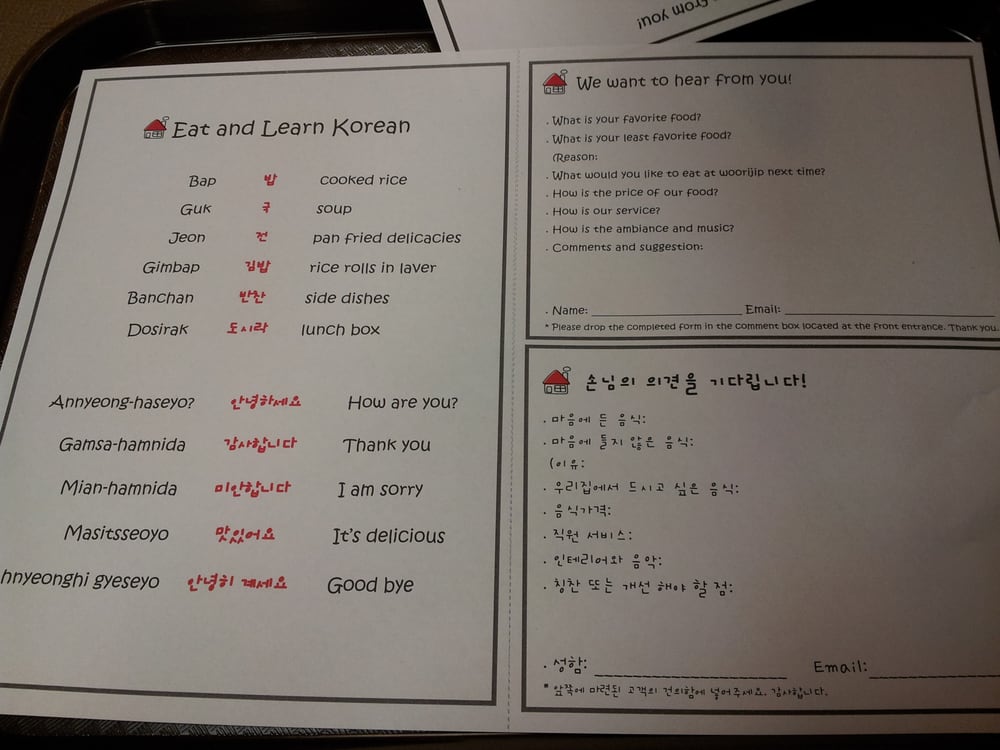 from you!
Eat and Learn Korean
Bap 밥 cooked rice
Guk 국 soup
Jeon 전 pan fried delicacies
Gimbap 김밥 rice rolls in laver
Banchan 반찬 side dishes
Dosirak 도시락 lunch box
Annyeong-haseyo? 안녕하세요 How are you?
Gamsa-hamnida 감사합니다 Thank you
Mian-hamnida 미안합니다 I am sorry
Masitsseoyo 맛있어요 It's delicious
hnyeonghi gyeseyo 안녕히 계세요 Good bye
We want to hear from you!
. What is your favorite food?
. What is your least favorite food?
(Reason:
. What would you like to eat at woorijip next time?
. How is the price of our food?
. How is our service?
. How is the ambiance and music?
. Comments and suggestion:
. Name: Email:
* Please drop the completed form in the comment box located at the front entrance. Thank you.
손님의 의견을 기다립니다!
. 마음에 든 음식:
. 마음에 들지 않은 음식:
(이유:
. 우리집에서 드시고 싶은 음식:
. 음식가격:
. 직원 서비스:
. 인테리어와 음악:
. 칭찬 또는 개선 해야 할 점:
. 성함: Email:
* 앞쪽에 마련된 고객의 건의함에 넣어주세요. 감사합니다.